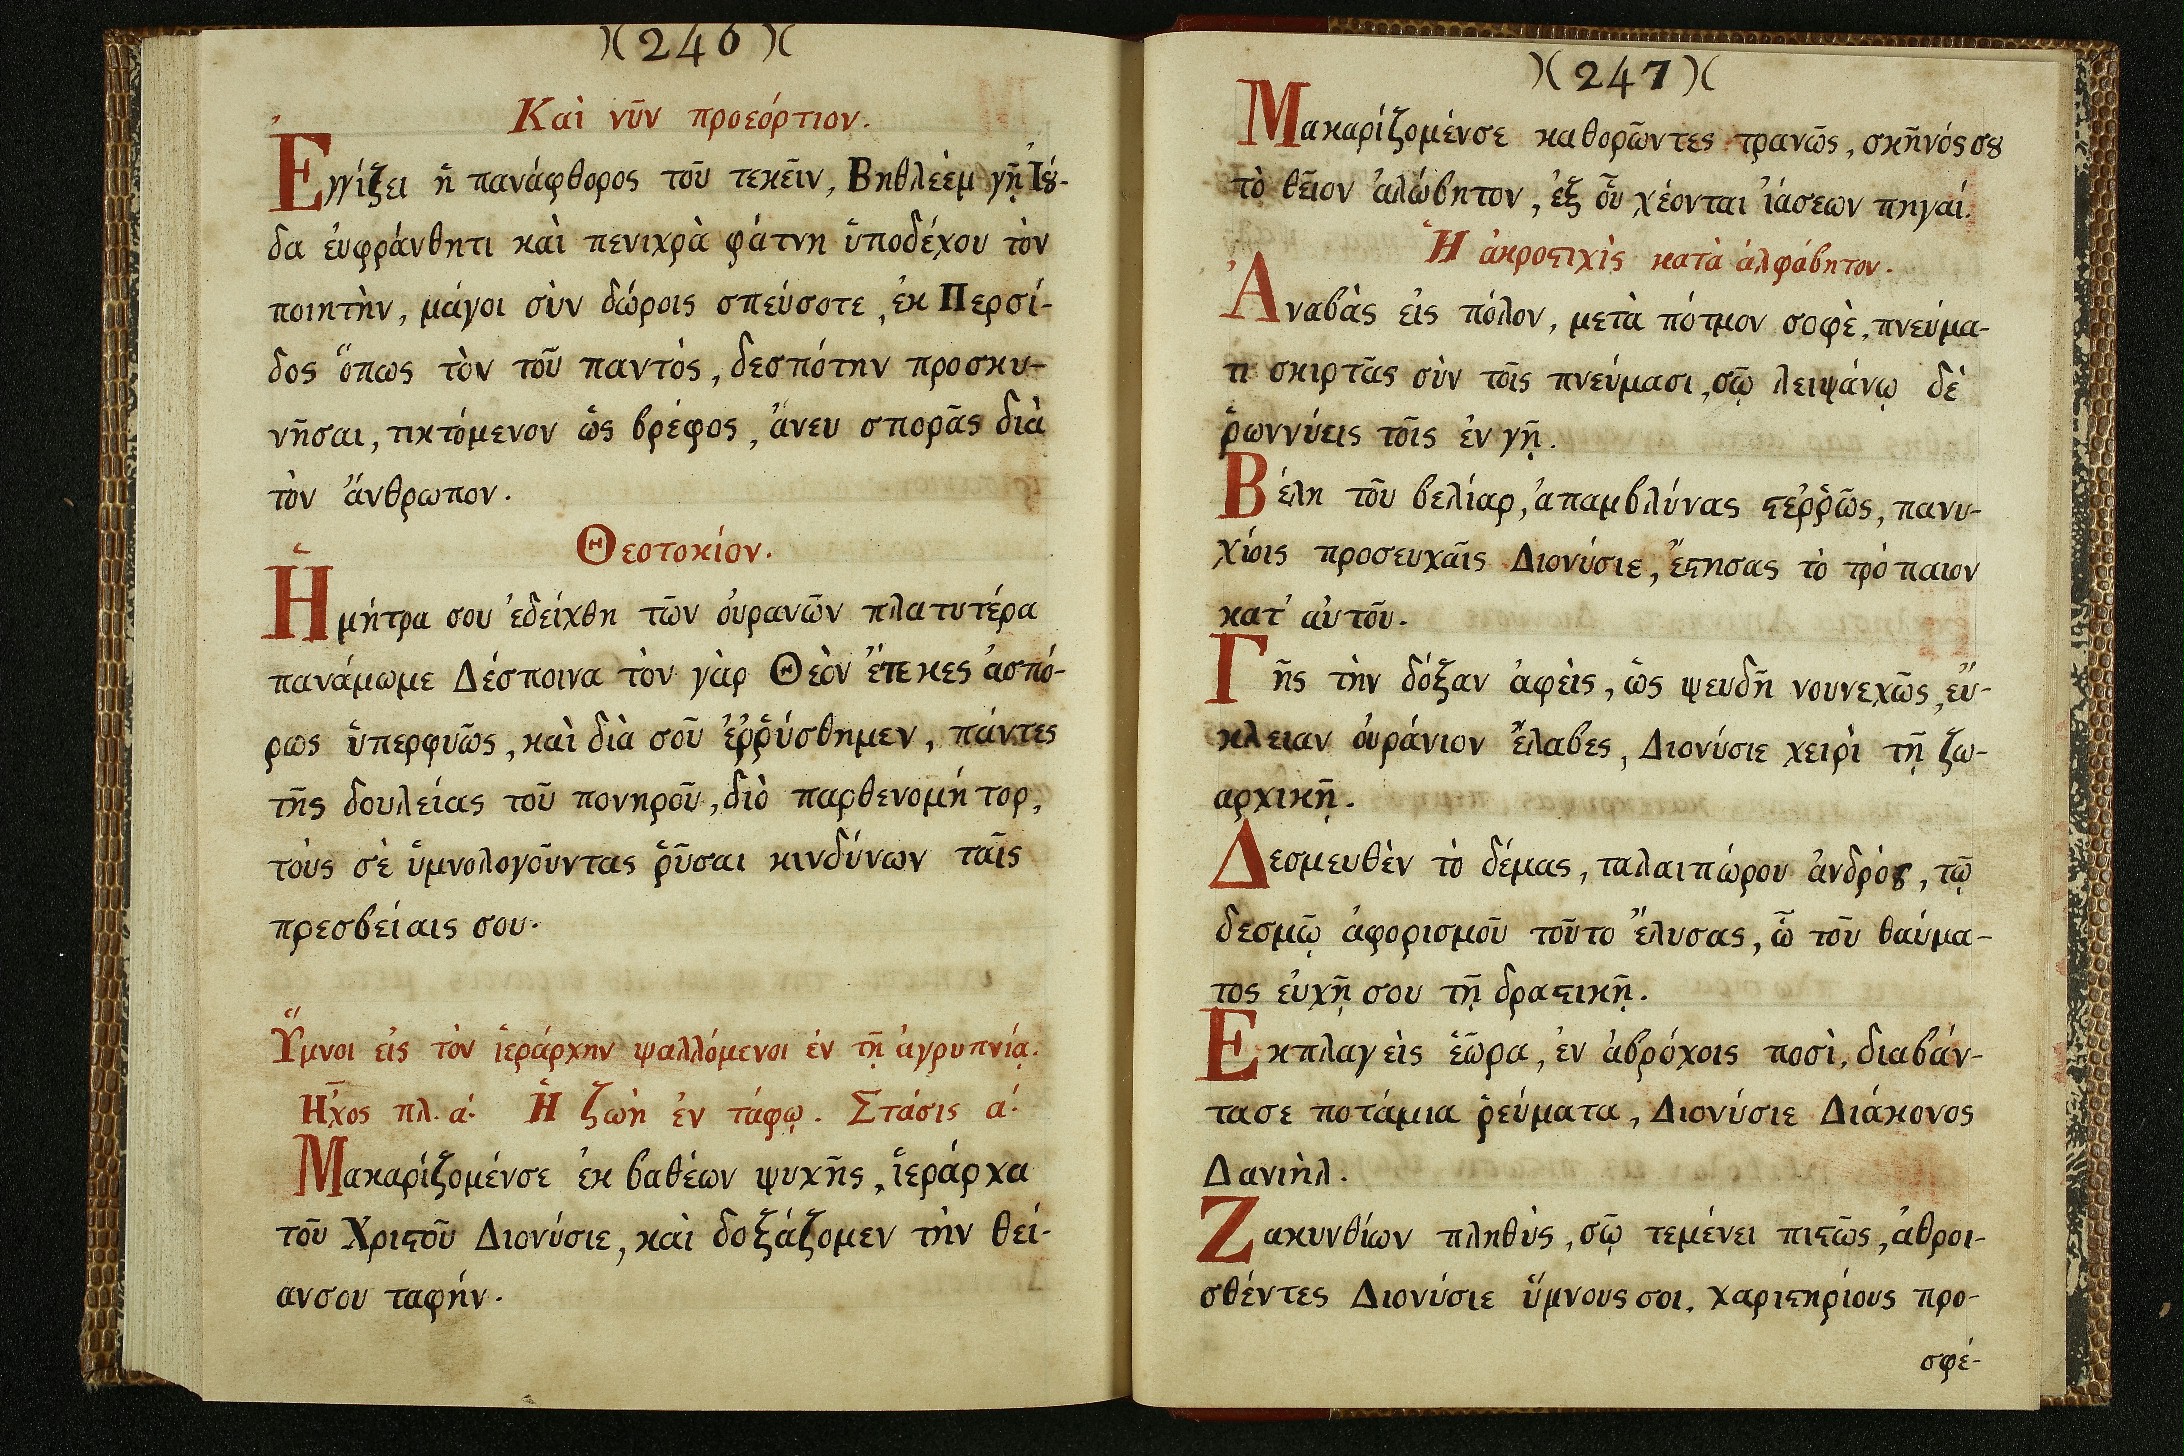 )( 246 )(
Καὶ νῦν προεόρτιον.
Ἐγγίζει ἡ πανάφθορος τοῦ τεκεῖν, Βηθλεὲμ γῇ Ἰού-
δα εὐφράνθητι καὶ πενιχρὰ φάτνη ὑποδέχου τὸν
ποιητὴν, μάγοι σὺν δώροις σπεύσοτε, ἐκ Περσί-
δος ὅπως τὸν τοῦ παντὸς, δεσπότην προσκυ-
νῆσαι, τικτόμενον ὡς βρέφος, ἄνευ σπορᾶς διὰ
τὸν ἄνθρωπον.
Θεοτοκίον.
Ἡ μήτρα σου ἐδείχθη τῶν οὐρανῶν πλατυτέρα
πανάμωμε Δέσποινα τὸν γὰρ Θεὸν ἔτεκες ἀσπό-
ρως ὑπερφυῶς, καὶ διὰ σοῦ ἐῤῥύσθημεν, πάντες
τῆς δουλείας τοῦ πονηροῦ, διὸ παρθενομήτορ,
τοὺς σὲ ὑμνολογοῦντας ῥῦσαι κινδύνων ταῖς
πρεσβείαις σου.
Ὕμνοι εἰς τὸν ἱεράρχην ψαλλόμενοι ἐν τῇ ἀγρυπνίᾳ.
Ἦχος πλ. ά. Ἡ ζωὴ ἐν τάφῳ. Στάσις ά.
Μακαρίζομένσε ἐκ βαθέων ψυχῆς, ἱεράρχα
τοῦ Χριϛοῦ Διονύσιε, καὶ δοξάζομεν τὴν θεί-
ανσου ταφήν.
)( 247 )(
Μακαρίζομένσε καθορῶντες τρανῶς, σκῆνός σȣ
τὸ θεῖον ἀλώβητον, ἐξ οὗ χέονται ἰάσεων πηγαί.
Ἡ ἀκροϛιχὶς κατὰ ἀλφάβητον.
Ἀναβὰς εἰς πόλον, μετὰ πότμον σοφὲ, πνεύμα-
τι σκιρτᾶς σὺν τοῖς πνεύμασι, σῷ λειψάνῳ δὲ
ῥωννύεις τοῖς ἐν γῇ.
Βέλη τοῦ βελίαρ, ἀπαμβλύνας ϛεῤῥῶς, πανυ-
χίοις προσευχαῖς Διονύσιε, ἔϛησας τὸ τρόπαιον
κατ' αὐτοῦ.
Γῆς τὴν δόξαν ἀφεὶς, ὡς ψευδῆ νουνεχῶς, εὔ-
κλειαν οὐράνιον ἔλαβες, Διονύσιε χειρὶ τῇ ζω-
αρχικῇ.
Δεσμευθὲν τὸ δέμας, ταλαιπώρου ἀνδρὸς, τῷ
δεσμῷ ἀφορισμοῦ τοῦτο ἔλυσας, ὢ τοῦ θαύμα-
τος εὐχῇ σου τῇ δραϛικῇ.
Εκπλαγεὶς ἑῶρα, ἐν ἀβρόχοις ποσὶ, διαβάν-
τασε ποτάμια ῥεύματα, Διονύσιε Διάκονος
Δανιὴλ.
Ζακυνθίων πληθὺς, σῷ τεμένει πιϛῶς, ἀθροι-
σθέντες Διονύσιε ὕμνους σοι, χαριϛηρίους προ-
σφέ-